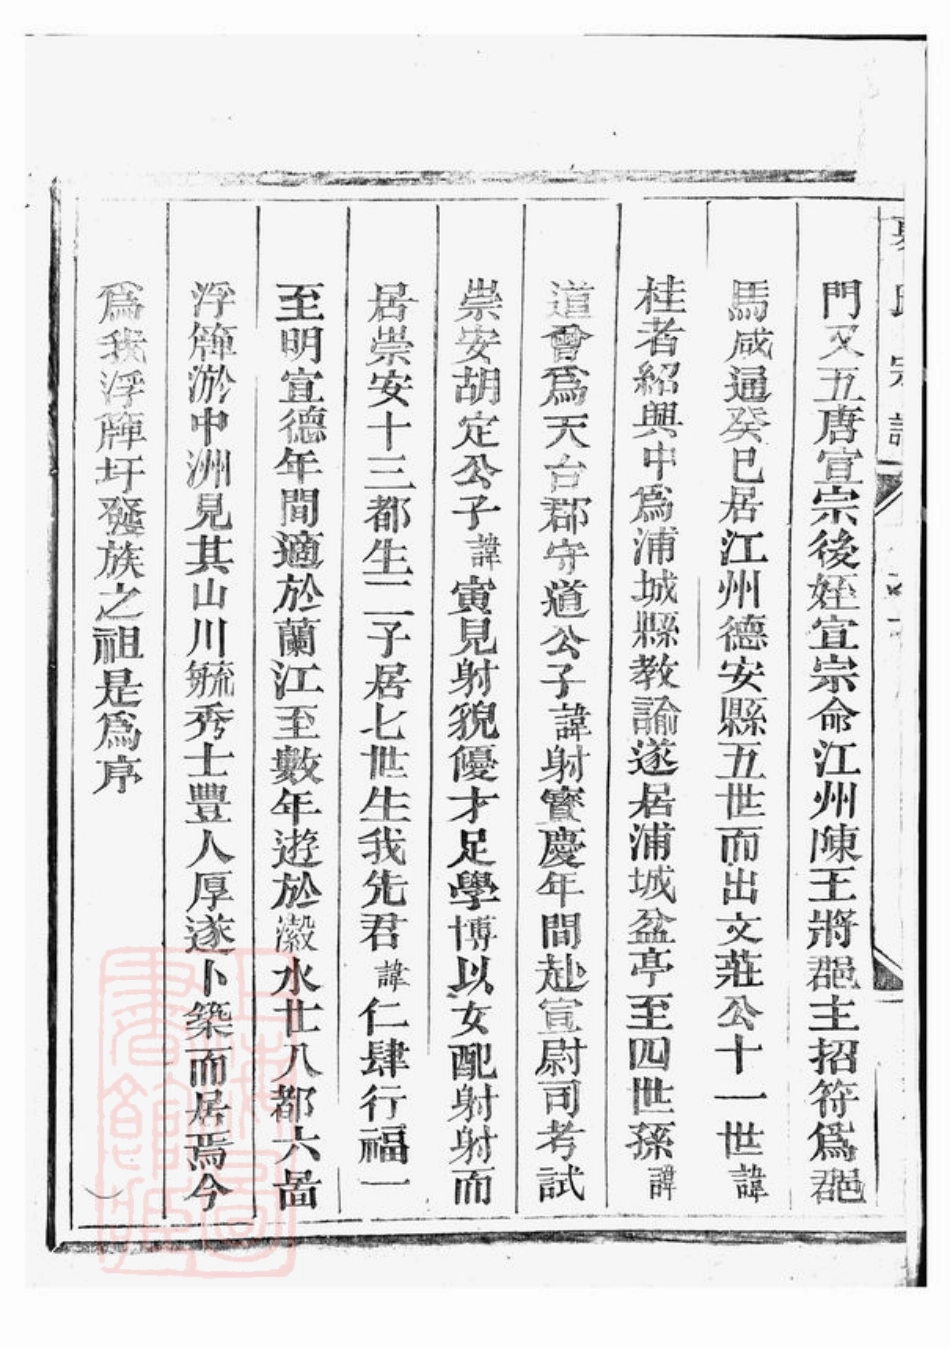 氏宗譜
門又五唐宣宗後姪宣宗命江州陳王將郡主招符爲郡
馬咸通癸巳居江州德安縣五世而出文莊公十一世諱
桂者紹興中爲浦城縣教諭遂居浦城盆亭至四世孫諱
道會爲天台郡守道公子諱射寶慶年間赴宣尉司考試
崇安胡定公子諱寅見射貌優才足學博以女配射射而
居崇安十三都生二子居七世生我先君諱仁肆行福一
至明宣德年間適於蘭江至數年遊於瀫水廿八都六啚
浮簰淤中洲見其山川毓秀士豐人厚遂卜築而居焉今
爲我浮簰圩發族之祖是爲序